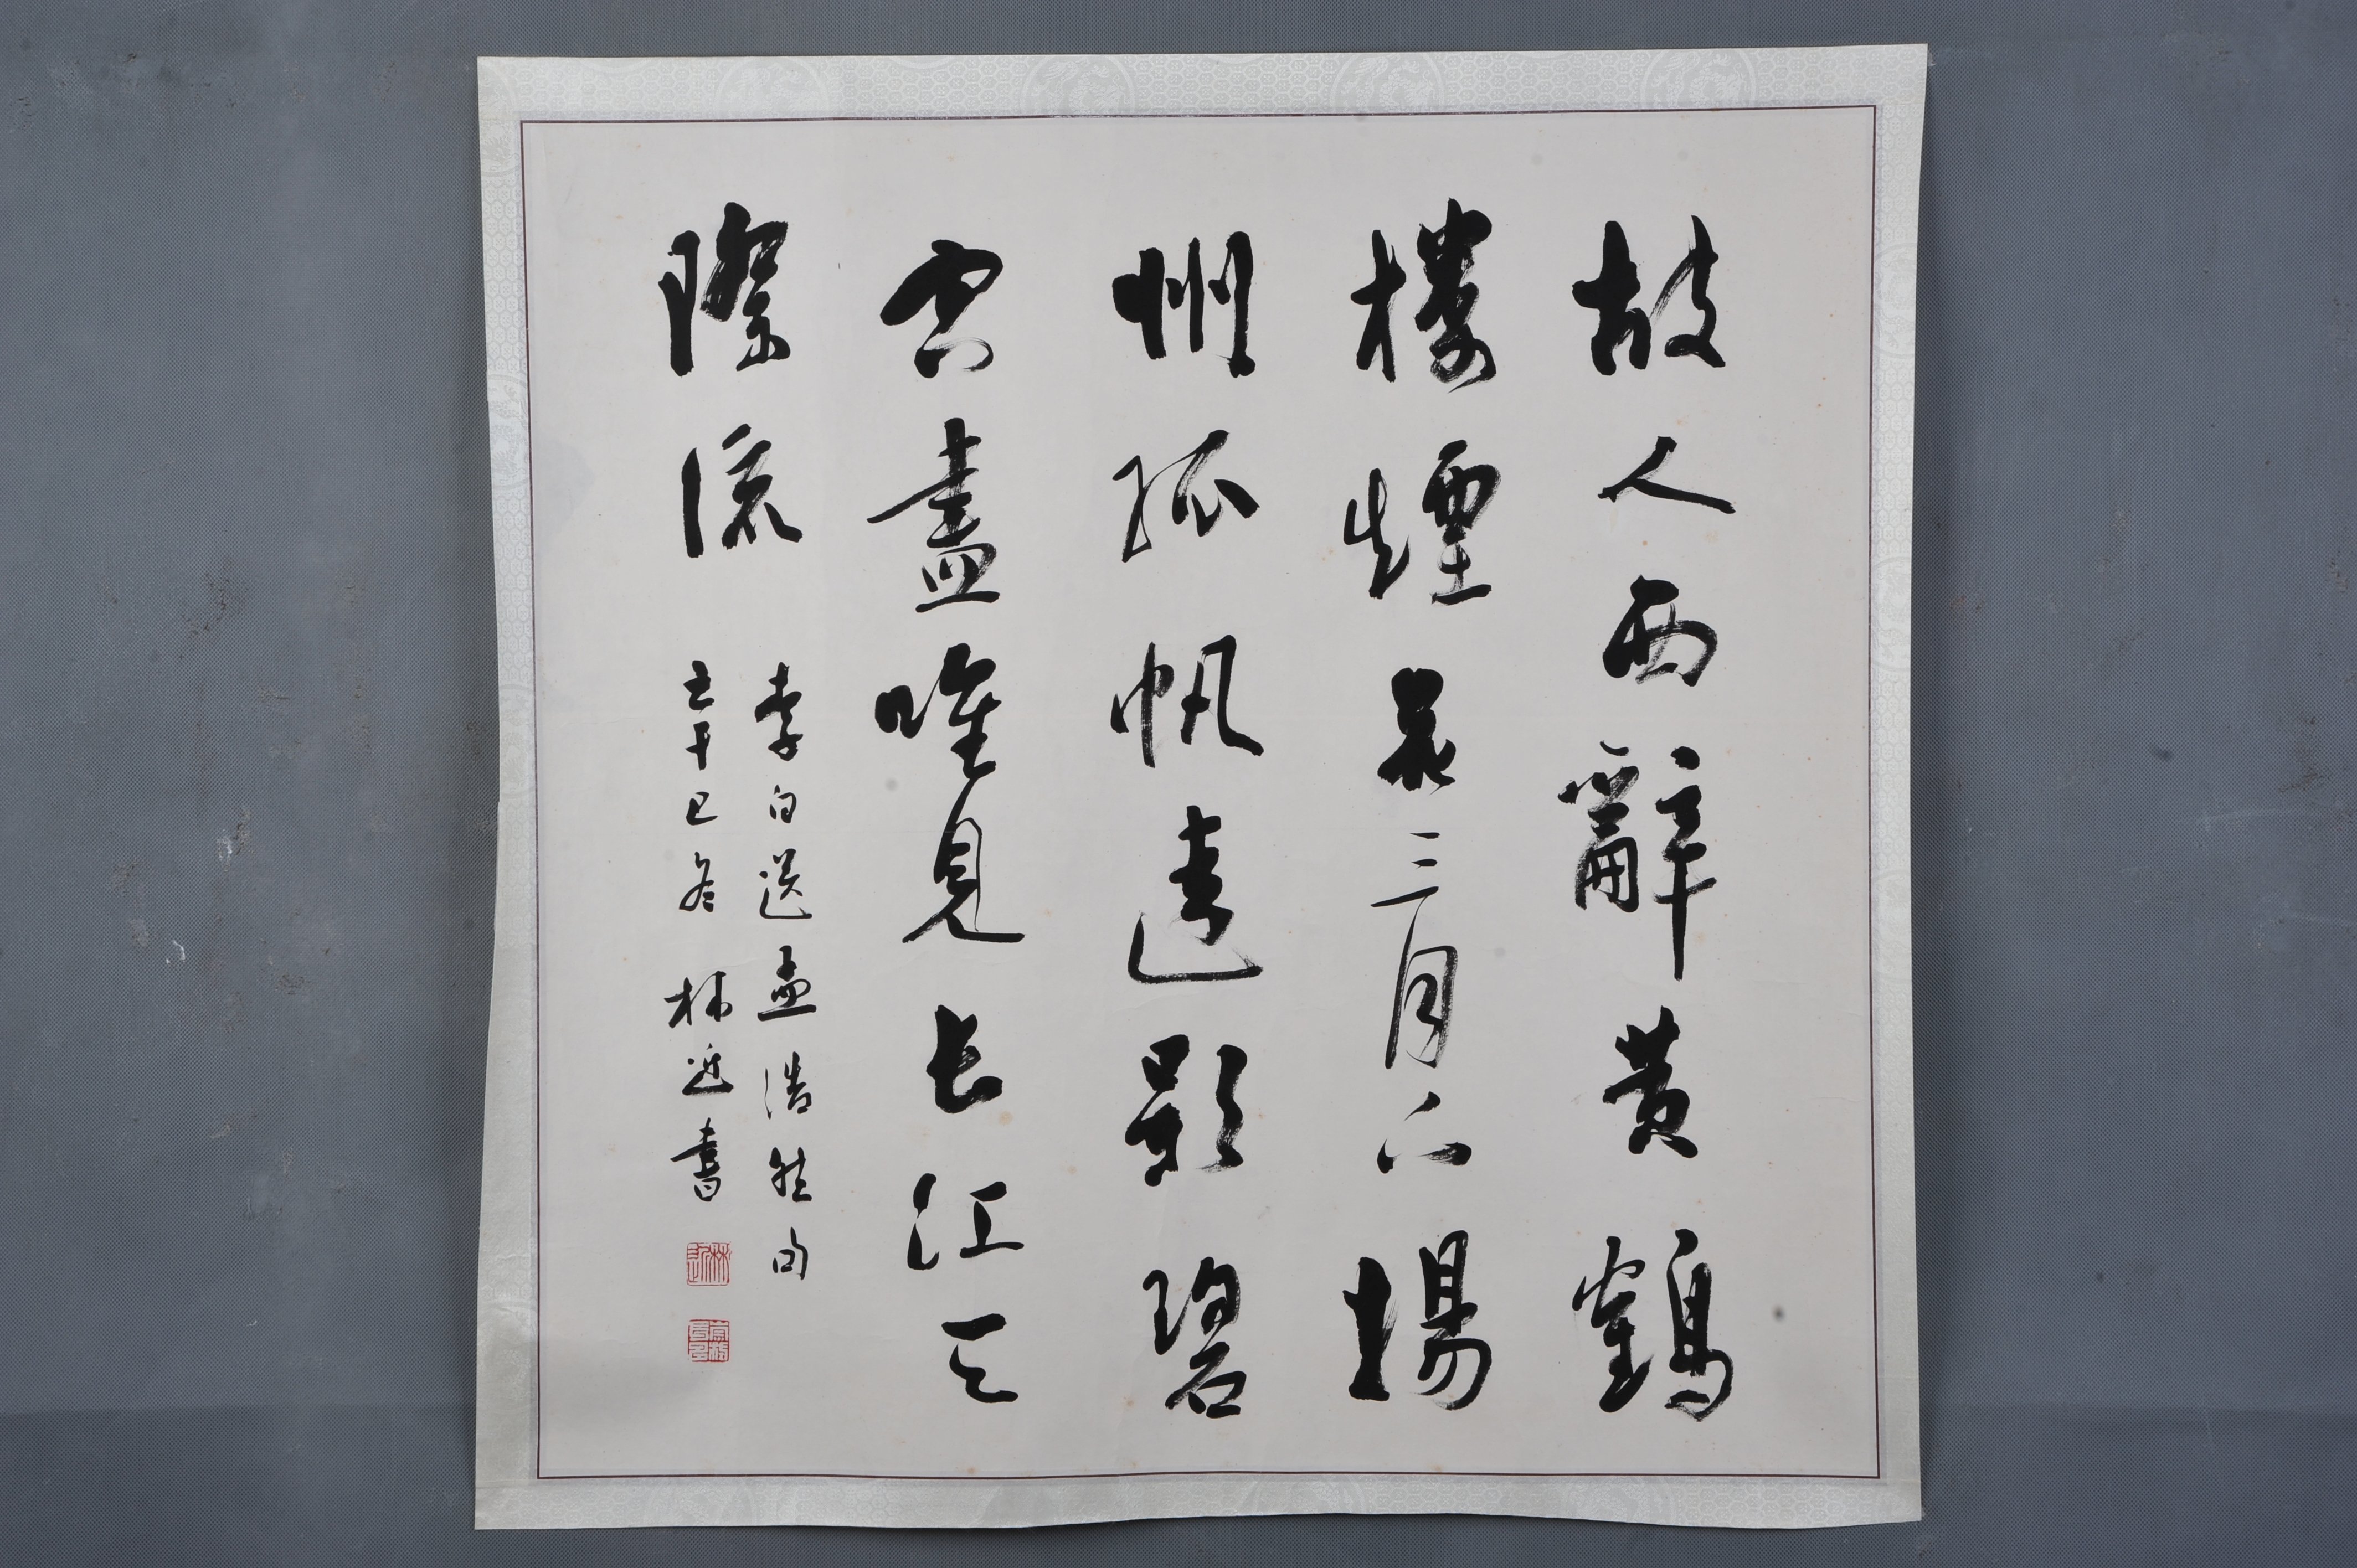 故人西辭黄鶴
樓煙花三月下揚
州孤帆遠影碧
空盡唯見長江天
際流
李白送孟浩然句
辛巳冬林近書
林近